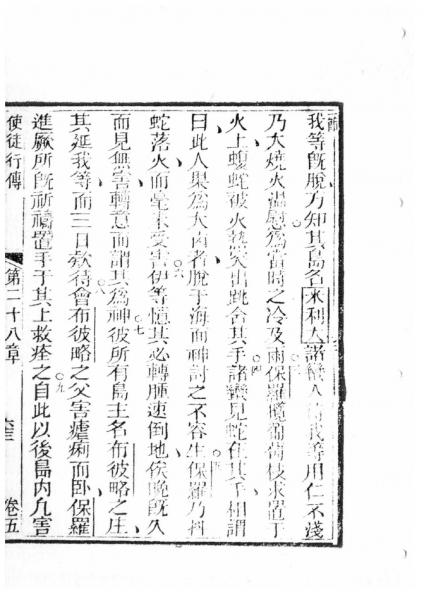 我等既脫方知其島名米利大諸蠻人待我等用仁不淺
乃大燒火溫慰為當時之冷及雨保羅攬樹枝求置于
火上蝮蛇被火熱突出跳合其手諸蠻見蛇在其手相謂
曰此人果為大凶者脫于海而神討之不容生保羅乃抖
蛇落火而毫未受害伊等憶其必轉腫速倒地俟晚既久
而見無害轉意而謂其為神彼所有島主名布彼略之庄
其延我等而三日欵待會布彼略之父害瘧痢而臥保羅
進厥所既祈禱置手于其上救痊之自此以後島內凢害
使徒行傳
第二十八章
卷五